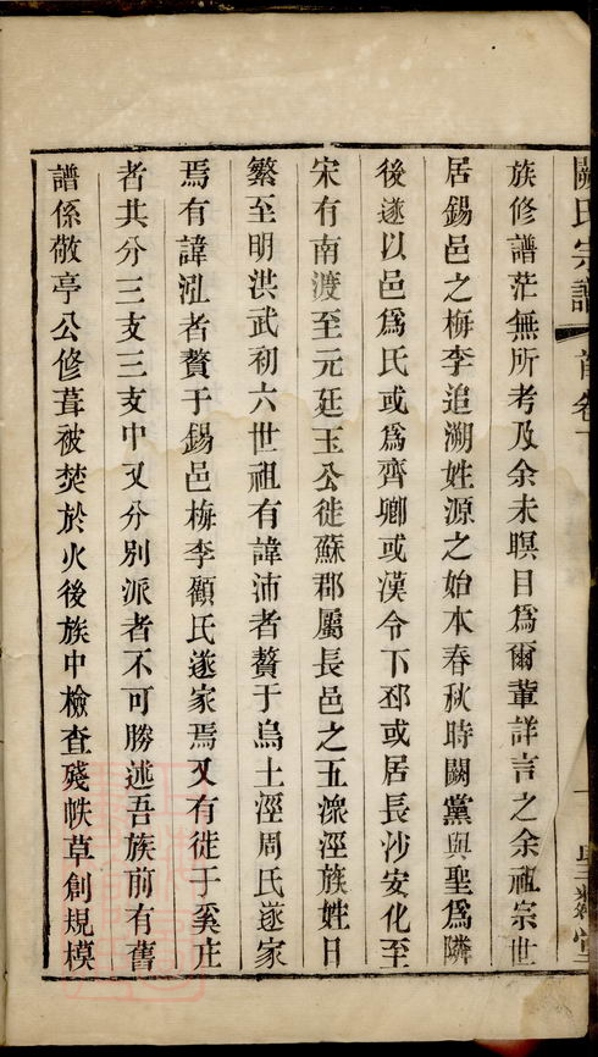 闕氏宗譜 首卷 一
族修譜茫無所考及余未瞑目爲爾輩詳言之余祖宗世
居錫邑之梅李追溯姓源之始本春秋時闕黨與聖爲隣
後遂以邑爲氏或爲齊卿或漢令下邳或居長沙安化至
宋有南渡至元廷玉公徙蘇郡屬長邑之五潨涇族姓日
繁至明洪武初六世祖有諱沛者贅于烏土涇周氏遂家
焉有諱泓者贅于錫邑梅李顧氏遂家焉又有徙于奚庄
者共分三支三支中又分別派者不可勝述吾族前有舊
譜係敬亭公修葺被焚於火後族中檢查殘帙草創規模